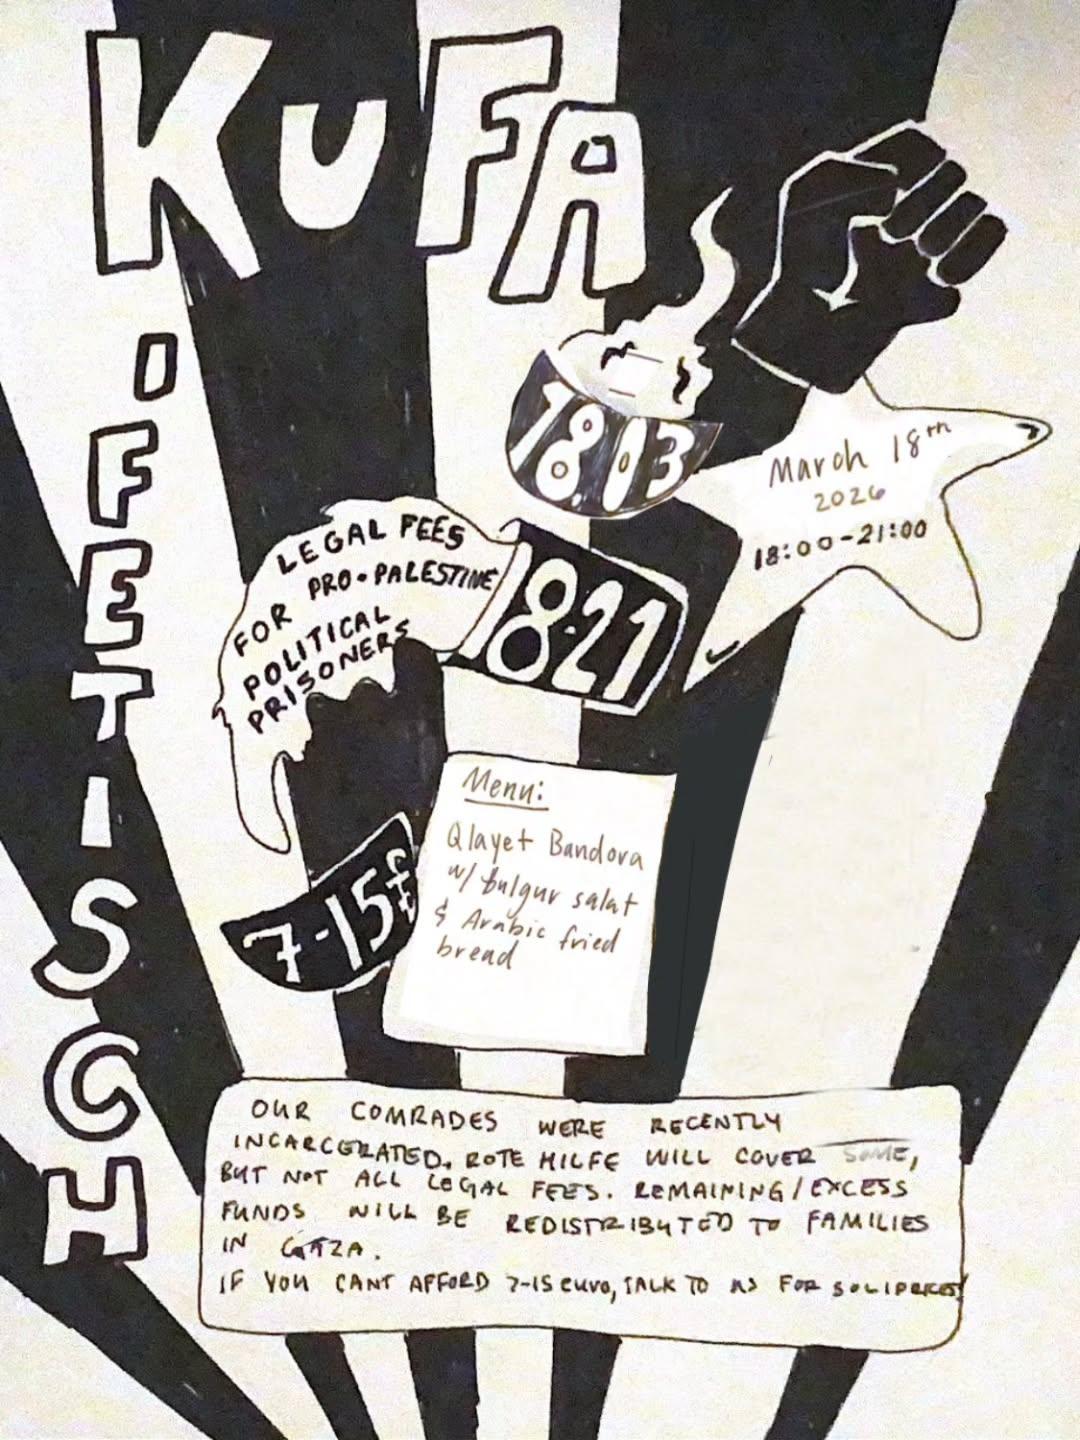 KUFA
OFETISCH
18.03
March 18th
2026
18:00-21:00
LEGAL FEES
FOR PRO-PALESTINE
POLITICAL
PRISONERS
18-21
7-15£
Menu:
Qlayet Bandora
w/ bulgur salat
& Arabic fried
bread
OUR COMRADES WERE RECENTLY
INCARCERATED. ROTE HILFE WILL COVER SOME,
BUT NOT ALL LEGAL FEES. REMAINING/EXCESS
FUNDS WILL BE REDISTRIBUTED TO FAMILIES
IN GAZA.
IF YOU CANT AFFORD 7-15 euro, TALK TO US FOR SOLIPRICES!